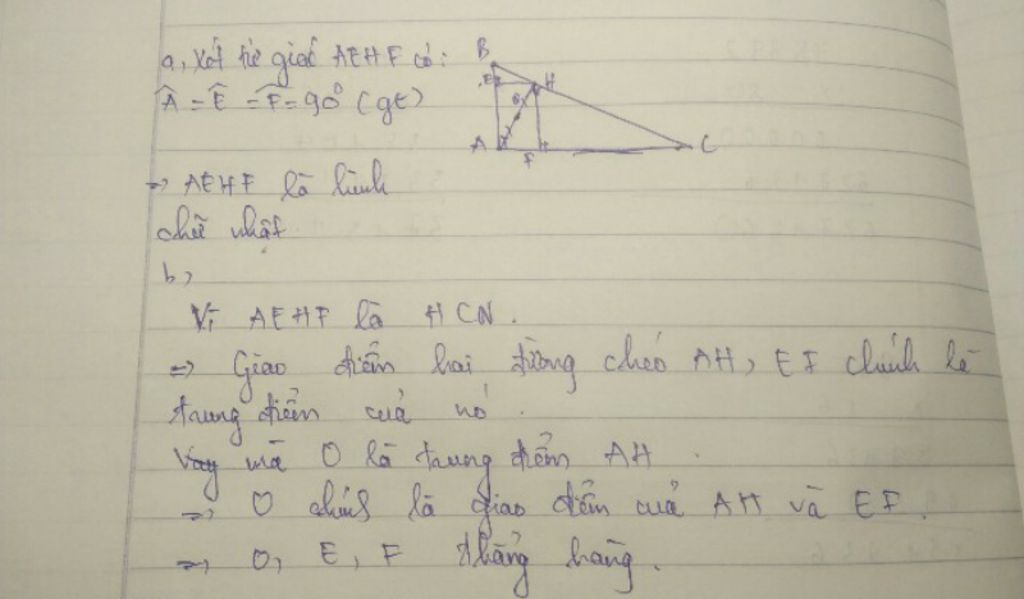 a, Xét tứ giác AEHF có:
Â = Ê = F̂ = 90° (gt)
B
E
H
O
A
F
C
=> AEHF là hình
chữ nhật
b,
Vì AEHF là HCN.
=> Giao điểm hai đường chéo AH, EF chính là
trung điểm của nó.
mà O là trung điểm AH.
=> O chính là giao điểm của AH và EF.
=> O, E, F thẳng hàng.